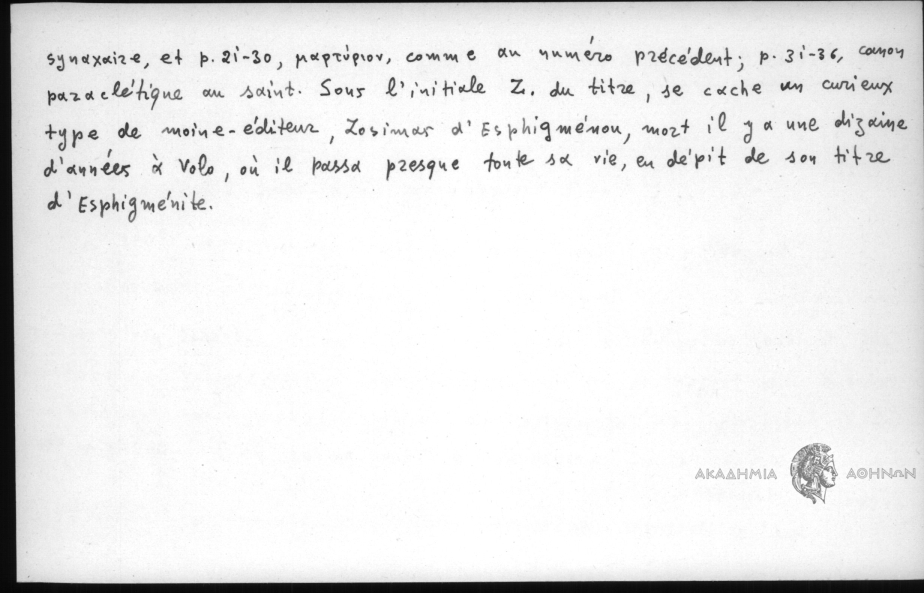 synaxaire, et p. 21-30, μαρτύριον, comme au numéro précédent; p. 31-36, canon
paraclétique au saint. Sous l'initiale Z. du titre, se cache un curieux
type de moine-éditeur, Zosimas d'Esphigménou, mort il y a une dizaine
d'années à Volo, où il passa presque toute sa vie, en dépit de son titre
d'Esphigménite.
ΑΚΑΔΗΜΙΑ ΑΘΗΝΩΝ